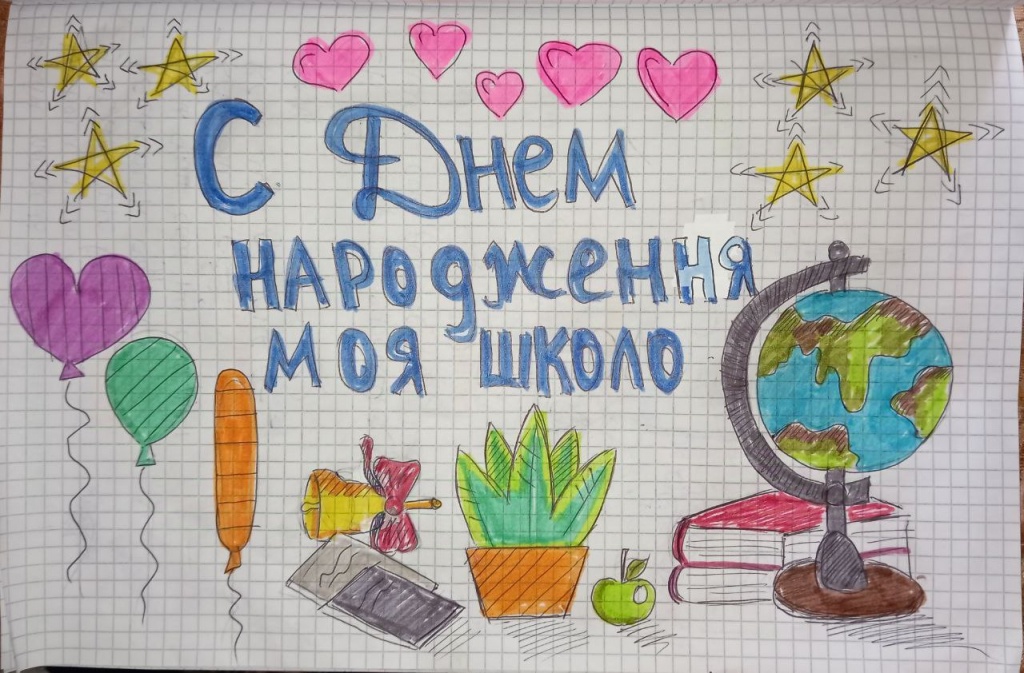 С Днем
народження
моя школо